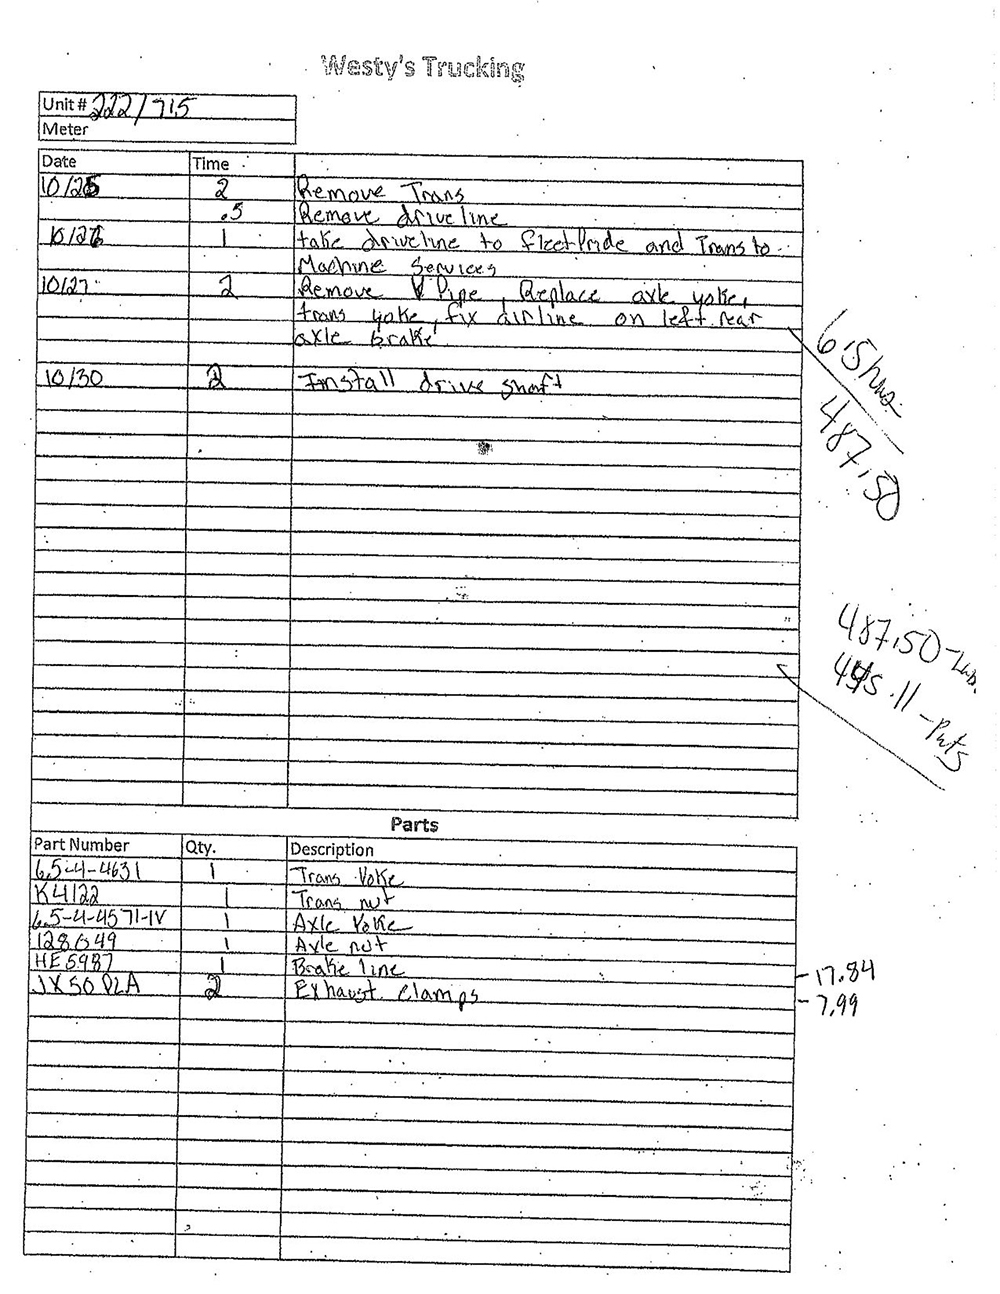 Westy's Trucking
Unit # 222/715
Meter
Date Time
10/26 2 Remove Trans
.5 Remove driveline
10/26 1 take driveline to fleetPride and Trans to
Machine Services
10/27 2 Remove Pipe, Replace axle yoke,
trans yoke, fix airline on left rear
axle Brake
10/30 2 Install drive shaft
6.5 hrs.
487.50
487.50 - Lab.
445.11 - Parts
Parts
Part Number Qty. Description
6.5-4-4631 1 Trans Yoke
K4122 1 Trans nut
6.5-4-4571-1V 1 Axle Yoke
128649 1 Axle nut
HE5987 1 Brake line - 17.84
JX50 PLA 2 Exhaust Clamps - 7.99